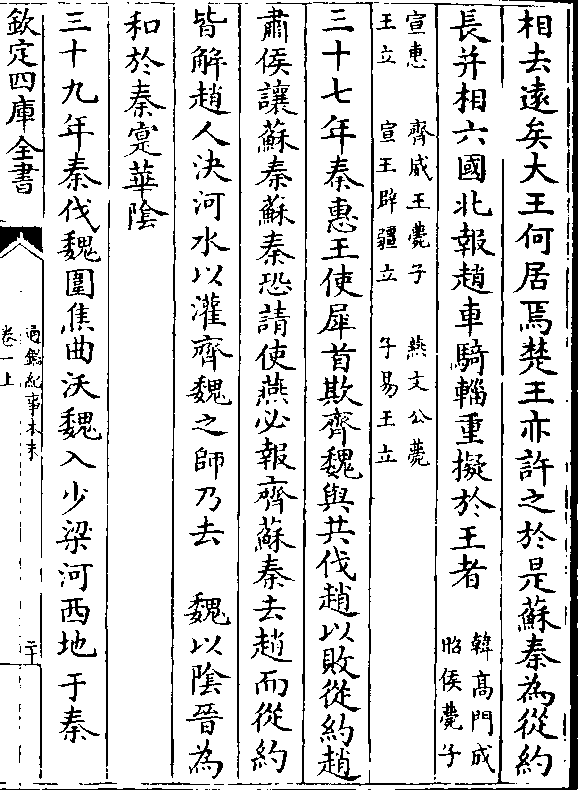 相去遠矣大王何居焉楚王亦許之於是蘇秦為從約
長并相六國北報趙車騎輜重擬於王者 韓髙門成昭侯薨子
宣惠王立 齊威王薨子宣王辟疆立 燕文公薨子易王立
三十七年秦惠王使犀首欺齊魏與共伐趙以敗從約趙
肅侯讓蘇秦蘇秦恐請使燕必報齊蘇秦去趙而從約
皆解趙人決河水以灌齊魏之師乃去 魏以陰晉為
和於秦寔華陰
三十九年秦伐魏圍焦曲沃魏入少梁河西地于秦
欽定四庫全書
通鑑紀事本末
卷一上
二十